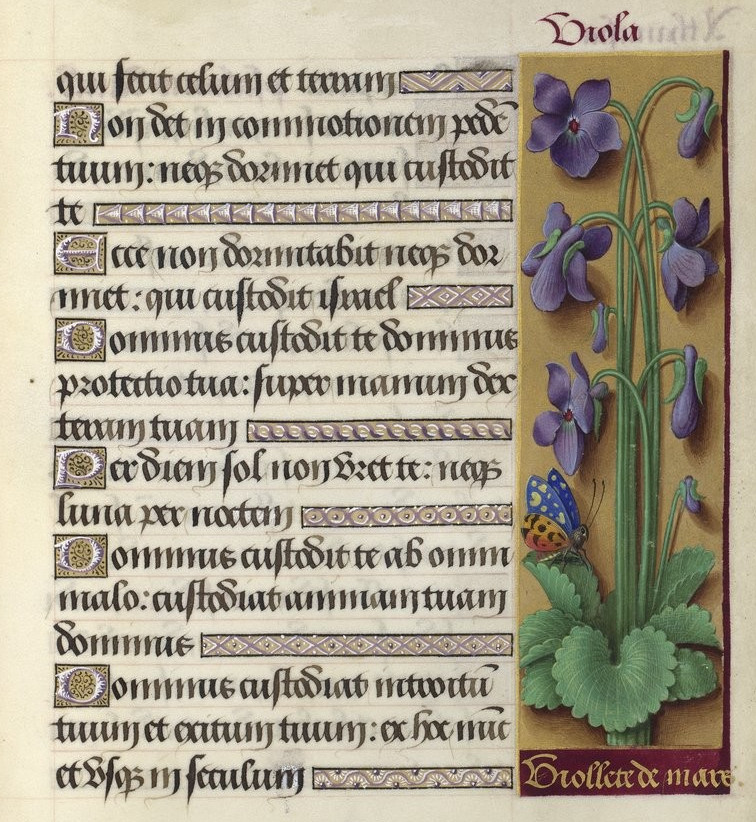 Viola
qui fecit celum et terram
Non det in commotionem pedē
tuum: neqз dormiet qui custodit
te
Ecce non dormitabit neqз dor
miet: qui custodit israel
Dominus custodit te dominus
protectio tua: super manum dex
teram tuam
Per diem sol non vret te: neqз
luna per noctem
Dominus custodit te ab omni
malo: custodiat animam tuam
dominus
Dominus custodiat introitū
tuum et exitum tuum: ex hoc nūc
et vsqз in seculum
Viollete de mars